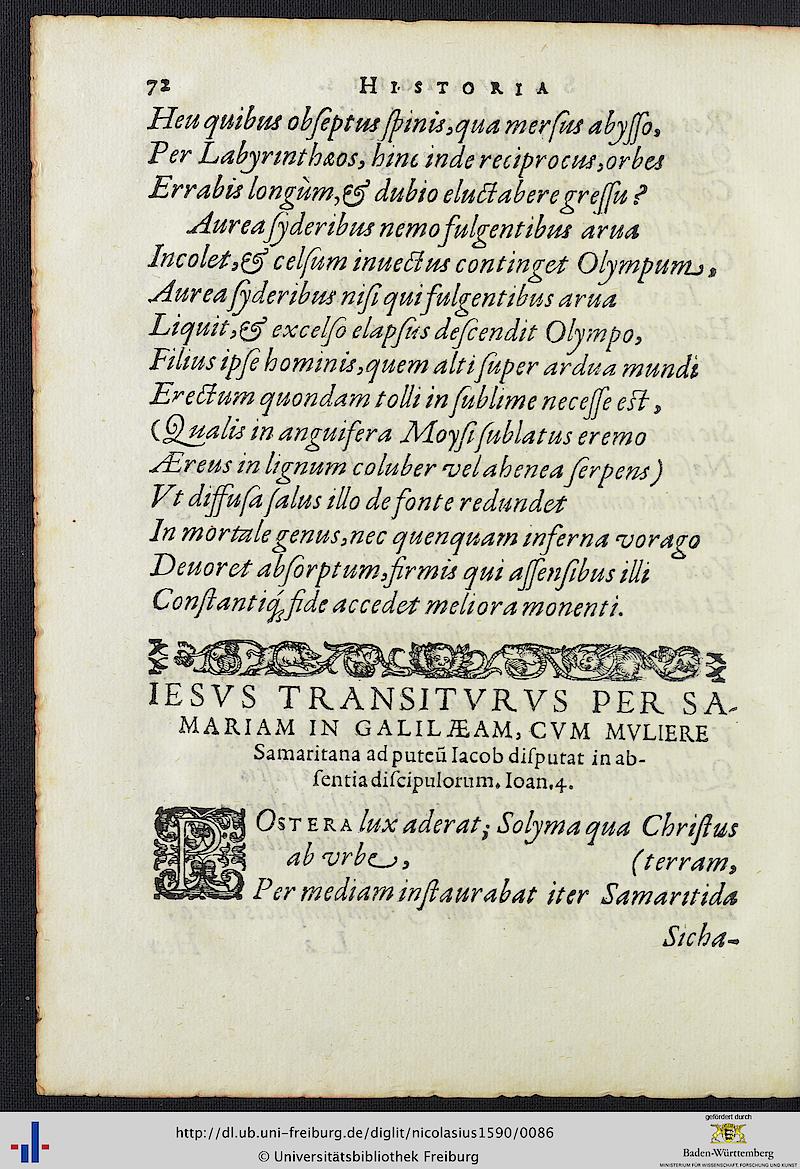 72 HISTORIA
Heu quibus obſeptus ſpinis, qua merſus abyſſo,
Per Labyrinthæos, hinc inde reciprocus, orbes
Errabis longùm, & dubio eluctabere greſſu?
Aurea ſyderibus nemo fulgentibus arua
Incolet, & celſum inuectus continget Olympum,
Aurea ſyderibus niſi qui fulgentibus arua
Liquit, & excelſo elapſus deſcendit Olympo,
Filius ipſe hominis, quem alti ſuper ardua mundi
Erectum quondam tolli in ſublime neceſſe eſt,
(Qualis in anguifera Moyſi ſublatus eremo
Æreus in lignum coluber vel ahenea ſerpens)
Vt diffuſa ſalus illo de fonte redundet
In mortale genus, nec quenquam inferna vorago
Deuoret abſorptum, firmis qui aſſenſibus illi
Conſtantiq́; fide accedet meliora monenti.
IESVS TRANSITVRVS PER SA-
MARIAM IN GALILÆAM, CVM MVLIERE
Samaritana ad puteū Iacob diſputat in ab-
ſentia diſcipulorum. Ioan. 4.
POSTERA lux aderat; Solyma qua Chriſtus
ab vrbe, (terram,
Per mediam inſtaurabat iter Samaritida
Sicha-
http://dl.ub.uni-freiburg.de/diglit/nicolasius1590/0086
© Universitätsbibliothek Freiburg
gefördert durch
Baden-Württemberg
MINISTERIUM FÜR WISSENSCHAFT, FORSCHUNG UND KUNST